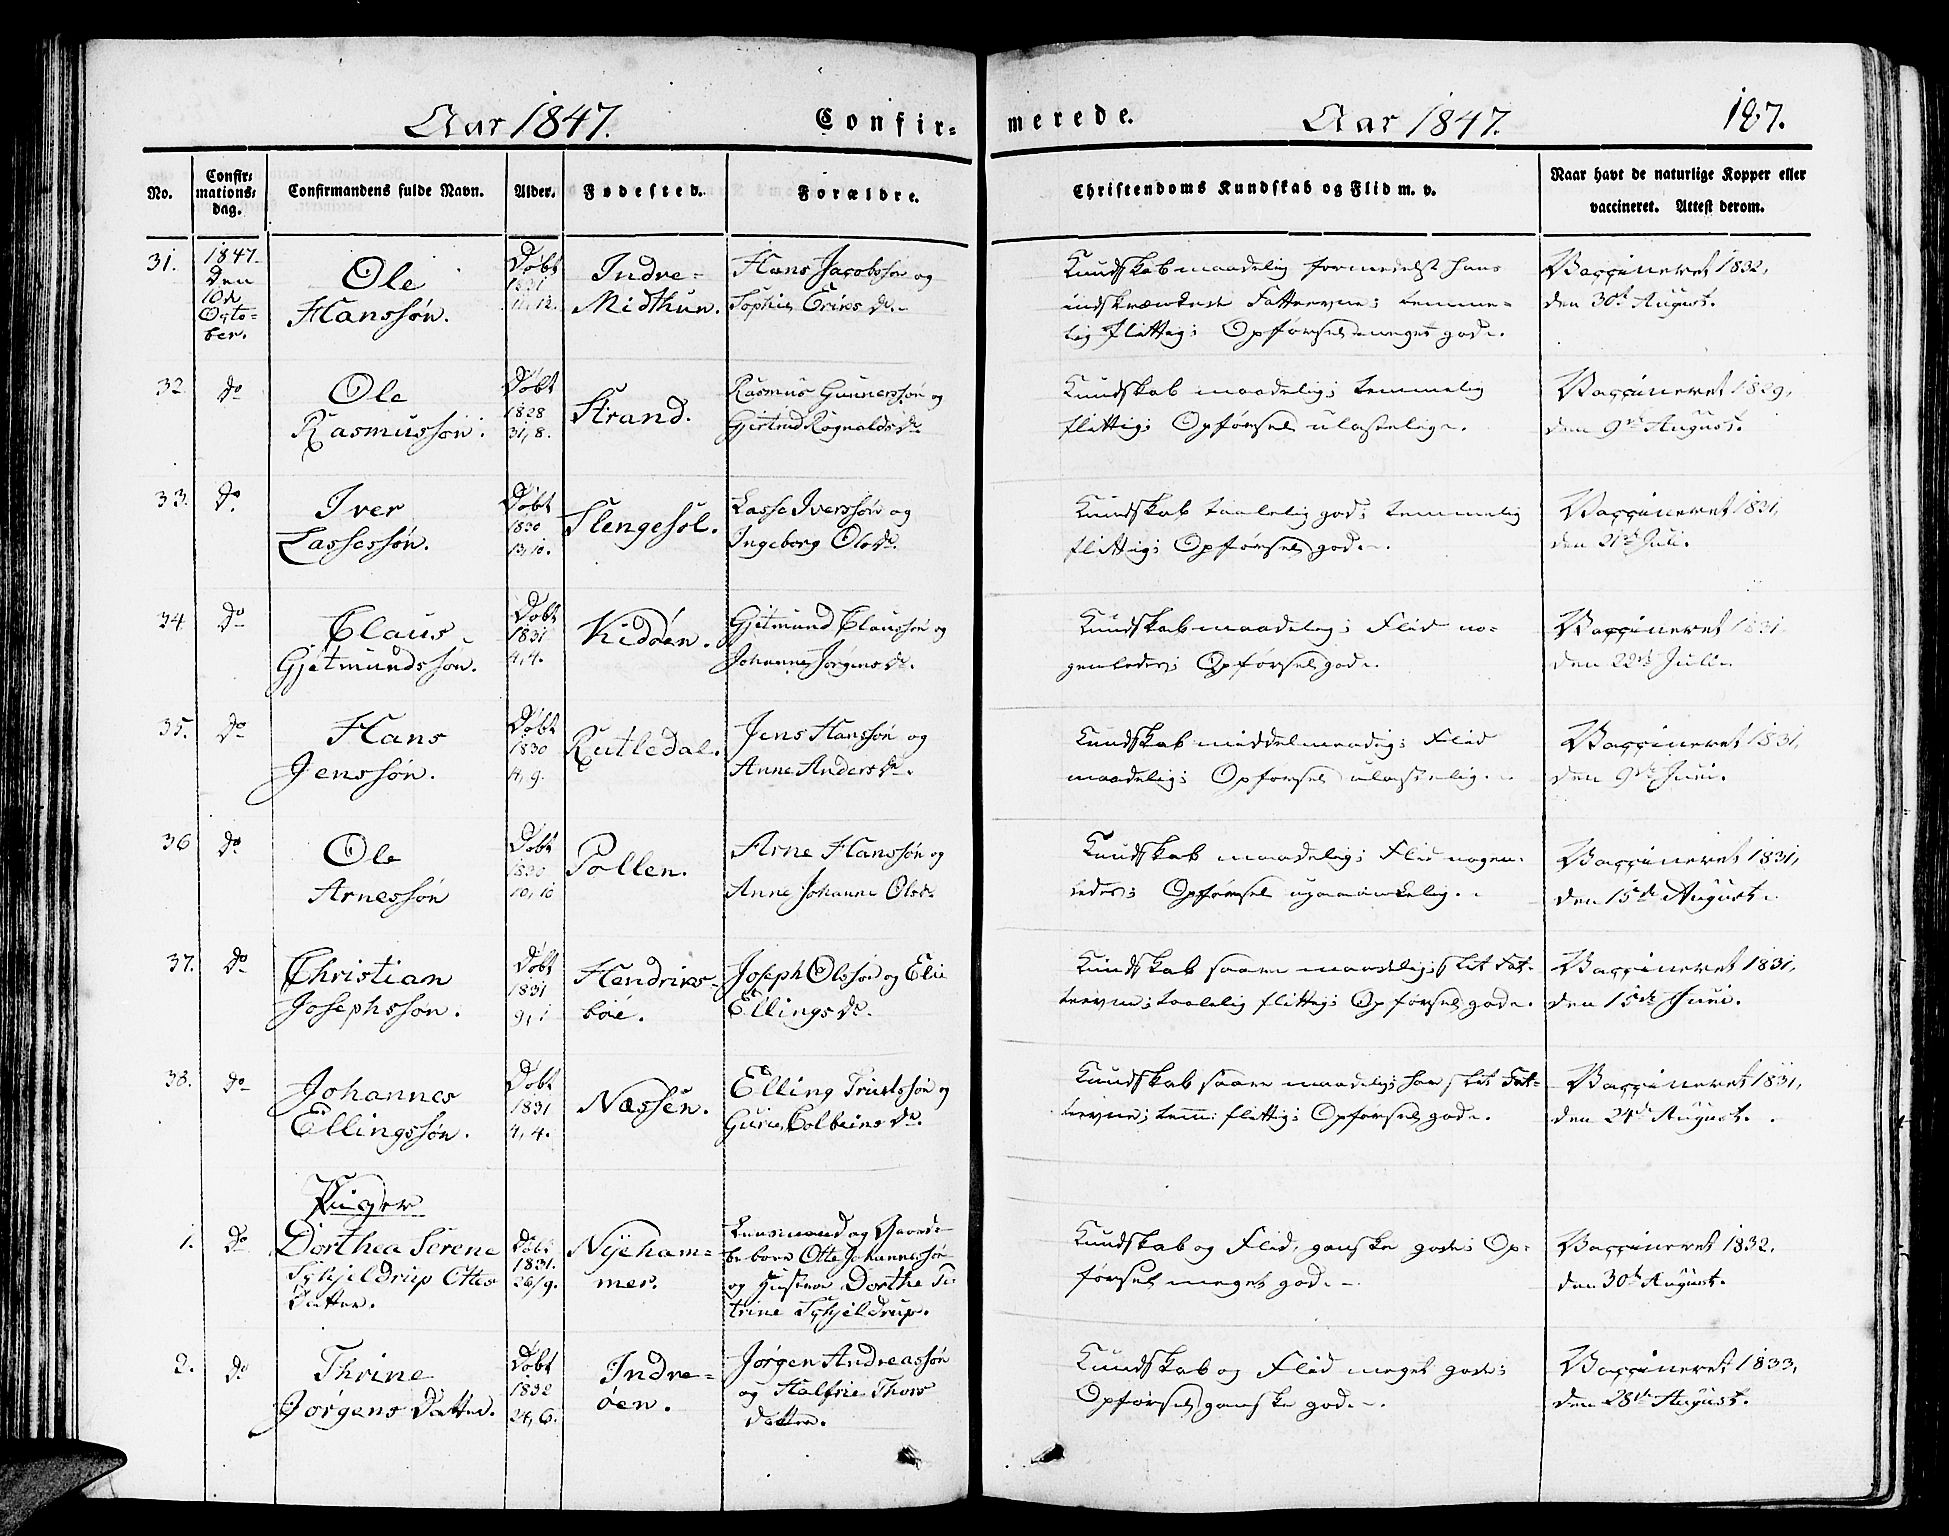 Aar 1847. Confir-
merede. Aar 1847. 187.
No. Confir-mations-dag. Confirmandens fulde Navn. Alder. Fødested. Forældre. Christendoms Kundskab og Flid m. v. Naar havt de naturlige Kopper eller vaccineret. Attest derom.
31. 1847. Den 10de Octo-ber.
Ole
Hanssøn.
Døbt
1831
11, 12.
Indre-
Midthun.
Hans Jacobssøn og
Sophie Eriks Dr.
Kundskab maadelig formedelst hans
indskrænkede Fatteevne; temme-
lig flittig; Opførsel meget god.
Vaccineret 1832,
den 30te August.
32. Do
Ole
Rasmussøn.
Døbt
1828
31, 8.
Strand.
Rasmus Gunnerssøn og
Gjertrud Rognalds Dr.
Kundskab maadelig; temmelig
flittig; Opførsel ulastelig.
Vaccineret 1829,
den 9de August.
33. Do
Iver
Lassessøn.
Døbt
1830
13, 10.
Slengesol.
Lasse Iverssøn og
Ingeborg Ols Dr.
Kundskab taalelig god; temmelig
flittig; Opførsel god.
Vaccineret 1831,
den 21de Juli.
34 Do
Claus
Gjetmundssøn.
Døbt
1831
4, 4.
Kidøen.
Gjetmund Claussøn og
Johanne Jørgens Dr.
Kundskab maadelig; Flid no-
genledes; Opførsel god.
Vaccineret 1831
den 22de Juli.
35. Do
Hans
Jenssøn.
Døbt
1830
4, 9.
Rutledal.
Jens Hanssøn og
Anne Anders Dr.
Kundskab middelmaadig; Flid
maadelig; Opførsel ulastelig.
Vaccineret 1831,
den 9de Juni.
36 Do
Ole
Arnessøn
Døbt
1830
10, 10
Pollen.
Arne Hanssøn og
Anne Johanne Ols Dr.
Kundskab maadelig; Flid nogen-
ledes; Opførsel upaaankelig.
Vaccineret 1831,
den 15de August.
37. Do
Christian
Josephssøn.
Døbt
1831
9, 1
Hendriks-
bøe.
Joseph Olssøn og Elie
Ellings Dr.
Kundskab saare maadelig; slet Fat-
teevne; taalelig flittig; Opførsel god.
Vaccineret 1831,
den 15de Juni.
38. Do
Johannes
Ellingssøn.
Døbt
1831
4, 4.
Næssen.
Elling Truelssøn og
Guri Colbeins Dr.
Kundskab saare maadelig; har slet Fat-
teevne; tem: flittig; Opførsel god.
Vaccineret 1831,
den 24de August.
Piger
1. Do
Dorthea Serene
Schjeldrup Ottes
Datter.
Døbt
1831.
26/9.
Nyeham-
mer.
Lensmand og Gaard-
beboer Otte Johannessøn
og Hustrue Dorthe Ca-
trine Schjeldrup.
Kundskab og Flid, ganske gode; Op-
førsel meget god.
Vaccineret 1832,
den 30te August.
2. Do
Thrine
Jørgens Datter.
Døbt
1832
24, 6.
Indre-
øen.
Jørgen Andreassøn
og Halfrie Thors
datter.
Kundskab og Flid meget gode;
Opførsel ganske god.
Vaccineret 1833,
den 28de August.